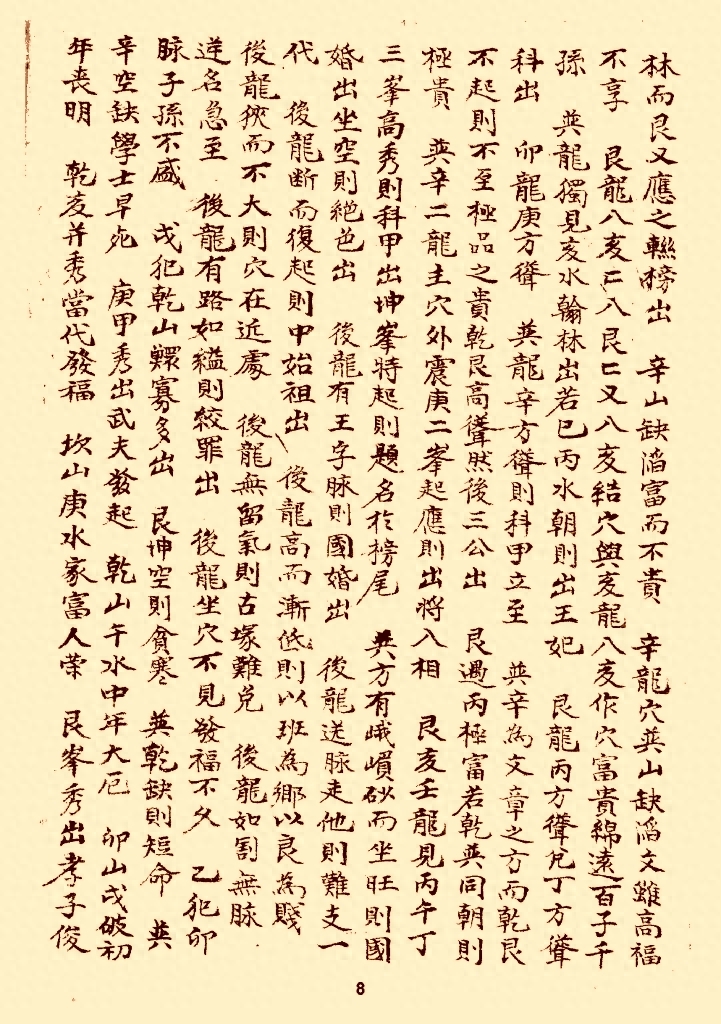 林而艮又應之聫榜出　辛山缺滔富而不貴　辛龍穴巽山缺滔文雖高福
不享　艮龍八亥亡八艮亡又八亥結穴與亥龍八亥作穴富貴綿遠百子千
孫　巽龍獨見亥水翰林出若巳丙水朝則出王妃　艮龍丙方聳兌丁方聳
科出　卯龍庚方聳　巽龍辛方聳則科甲立至　巽辛為文章之方而乾艮
不起則不至極品之貴乾艮高聳然後三公出　艮遇丙極富若乾巽同朝則
極貴　巽辛二龍主穴外震庚二峯起應則出將入相　艮亥壬龍見丙午丁
三峯高秀則科甲出坤峯特起則題名於榜尾　巽方有峨嵋砂而坐旺則國
婚出坐空則絕色出　後龍有王字脉則國婚出　後龍送脉走他則難支一
代　後龍断而復起則中始祖出　後龍高而漸低則以班為鄉以良為賤
後龍狹而不大則穴在近處　後龍無留氣則古塚難免　後龍如割無脉
逆名急至　後龍有路如縊則絞罪出　後龍坐穴不見發福不久　乙犯卯
脉子孫不盛　戌犯乾山鰥寡多出　艮坤空則貧寒　巽乾缺則短命　巽
辛空缺學士早死　庚甲秀出武夫發起　乾山午水中年大厄　卯山戌破初
年丧明　乾亥并秀當代發福　坎山庚水家富人荣　艮峯秀出孝子俊
8